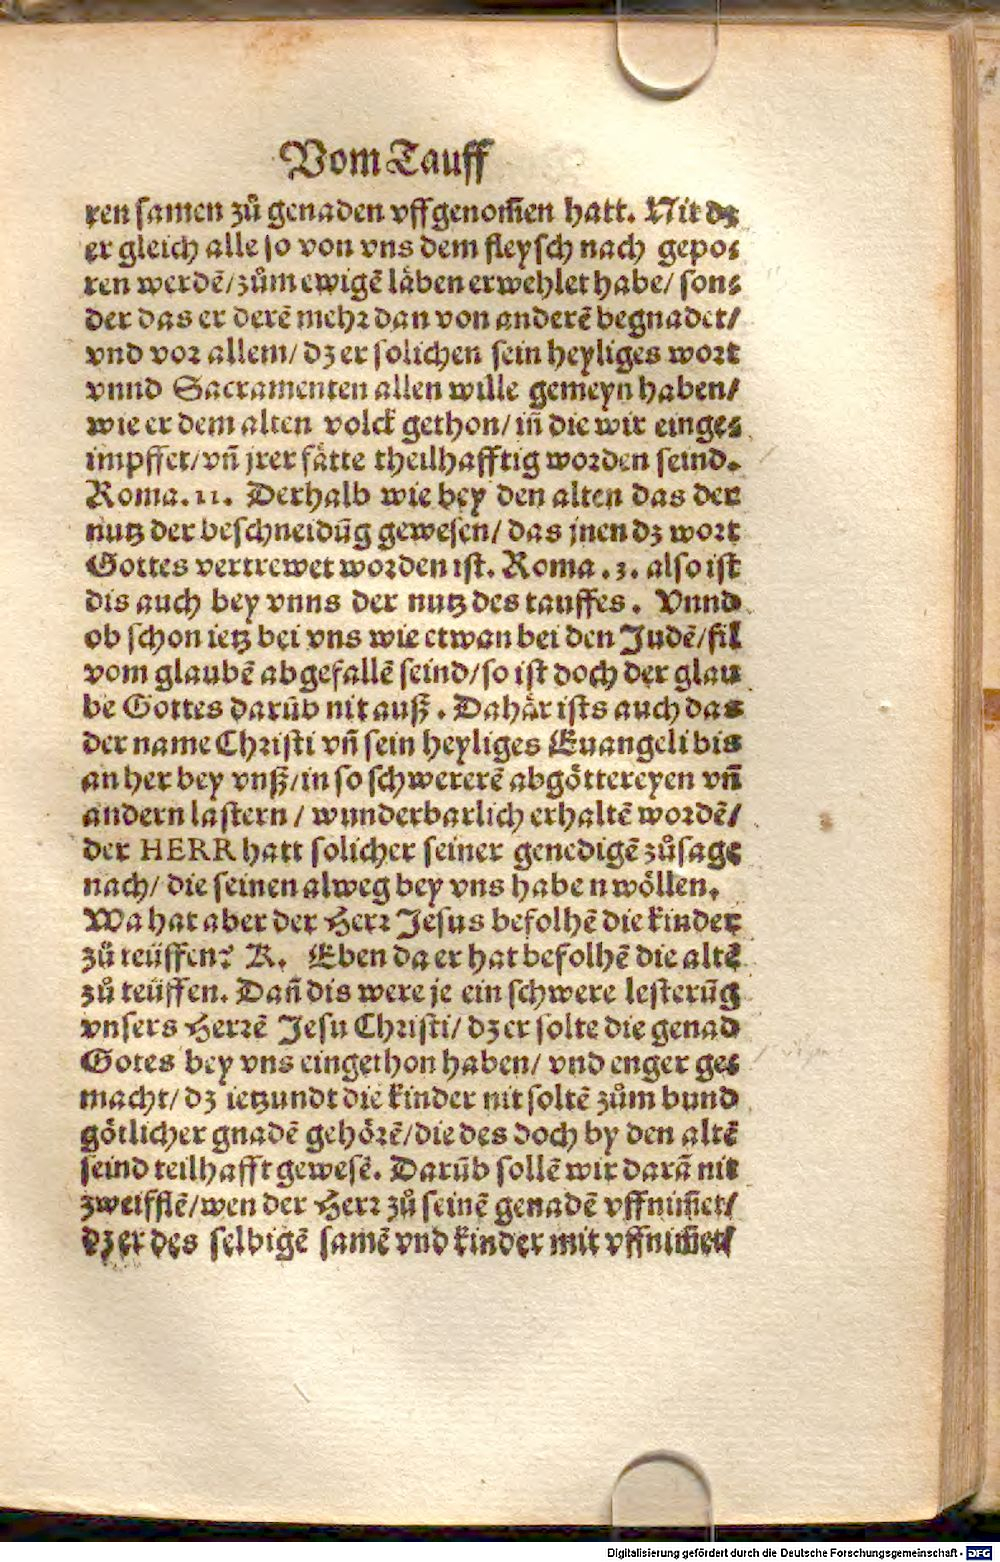 Vom Tauff
ren samen zů genaden vffgenom̃en hatt. Nit dz
er gleich alle so von vns dem fleysch nach gepo⸗
ren werdẽ/zům ewigẽ läben erwehlet habe/ son⸗
der das er derẽ mehr dan von anderẽ begnadet/
vnd vor allem/ dz er solichen sein heyliges wort
vnnd Sacramenten allen wille gemeyn haben/
wie er dem alten volck gethon/ in̄ die wir einge⸗
impffet/vn̄ jrer fätte theilhafftig worden seind.
Roma.11. Derhalb wie bey den alten das der
nutz der beschneidũg gewesen/ das jnen dz wort
Gottes vertrewet worden ist. Roma.3. also ist
dis auch bey vnns der nutz des tauffes. Vnnd
ob schon ietz bei vns wie etwan bei den Judẽ/fil
vom glaubẽ abgefallẽ seind/so ist doch der glau
be Gottes darũb nit auß. Dahär ists auch das
der name Christi vn̄ sein heyliges Euangeli bis
an her bey vnß/in so schwererẽ abgöttereyen vn̄
andern lastern / wunderbarlich erhaltẽ wordẽ/
der HERR hatt solicher seiner genedigẽ zůsage
nach/ die seinen alweg bey vns habe n wöllen.
Wa hat aber der Herr Jesus befolhẽ die kinder
zů teüffen? R. Eben da er hat befolhẽ die altẽ
zů teüffen. Dan̄ dis were je ein schwere lesterũg
vnsers Herrẽ Jesu Christi/ dz er solte die genad
Gotes bey vns eingethon haben/ vnd enger ge⸗
macht/ dz ietzundt die kinder nit soltẽ zům bund
götlicher gnadẽ gehörẽ/die des doch by den altẽ
seind teilhafft gewesẽ. Darũb sollẽ wir darã nit
zweifflẽ/wen der Herr zů seinẽ genadẽ vffnim̃et/
dz er des selbigẽ samẽ vnd kinder mit vffnim̃et/
Digitalisierung gefördert durch die Deutsche Forschungsgemeinschaft - DFG